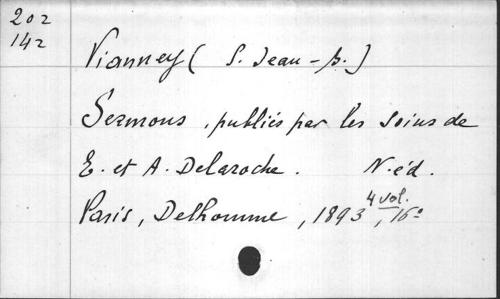 202
142
Vianney ( S. Jean-B. )
Sermons, publiés par les soins de
E. et A. Delaroche. N. éd.
Paris, Delhomme, 1893, 4 vol. 16°